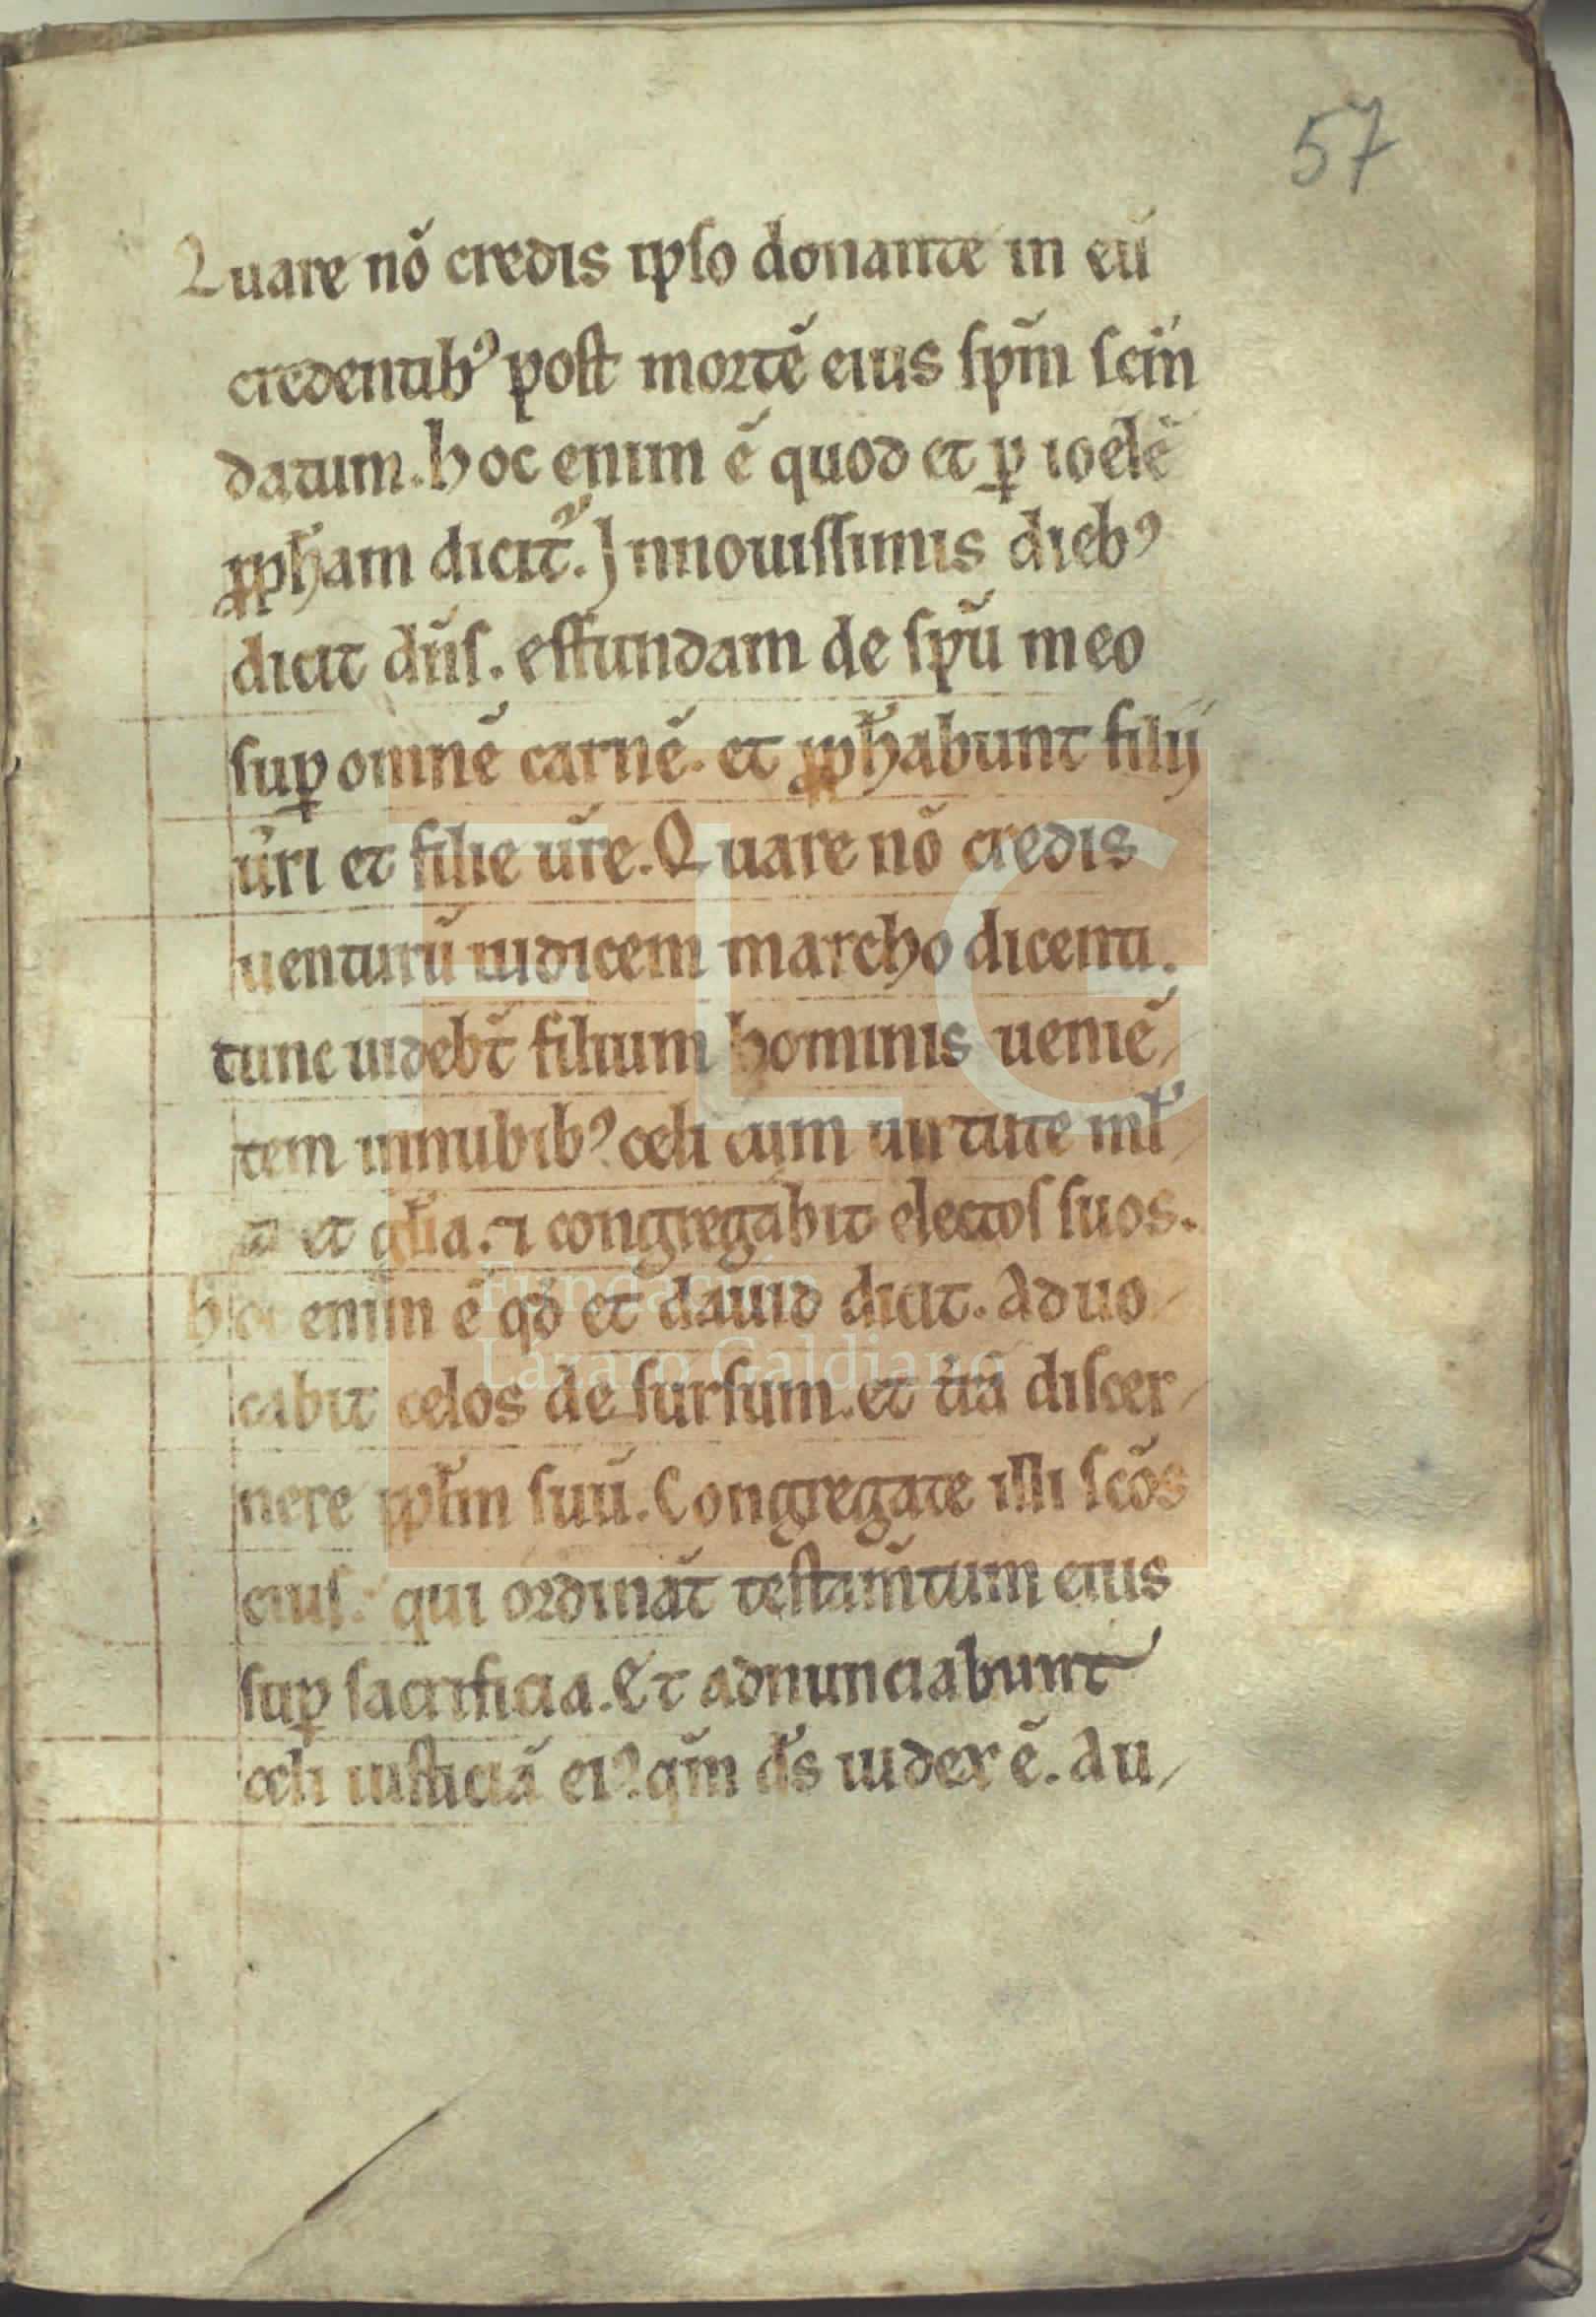 57
Quare nō credis ipso donante in eū
credentibꝰ post mortē eius sp̄m scm̄
datum. hoc enim ē quod et ꝑ ioelē
ꝓph̄am dicit᷑. Innouissimis diebꝰ
dicit dn̄s. effundam de sp̄u meo
suꝑ omnē carnē. et ꝓph̄abunt filij
ur̄i et filie ur̄e. Quare nō credis
uenturū iudicem marcho dicenti.
tunc uidebt̄ filium hominis ueniē/
tem innubibꝰ celi cum uirtute ml̄/
ta et gl̄ia. ⁊ congregabit electos suos.
hoc enim ē qd̄ et dauid dicit. Aduo/
cabit celos de sursum. et tr̄ā discer/
nere ppl̄m suū. Congregate illi scōs
eius. qui ordināt testam̄tum eius
suꝑ sacrificia. Et adnunciabunt
celi iusticiā eiꝰ. qm̄ ds̄ iudex ē. Au/
FLG
Fundación
Lázaro Galdiano